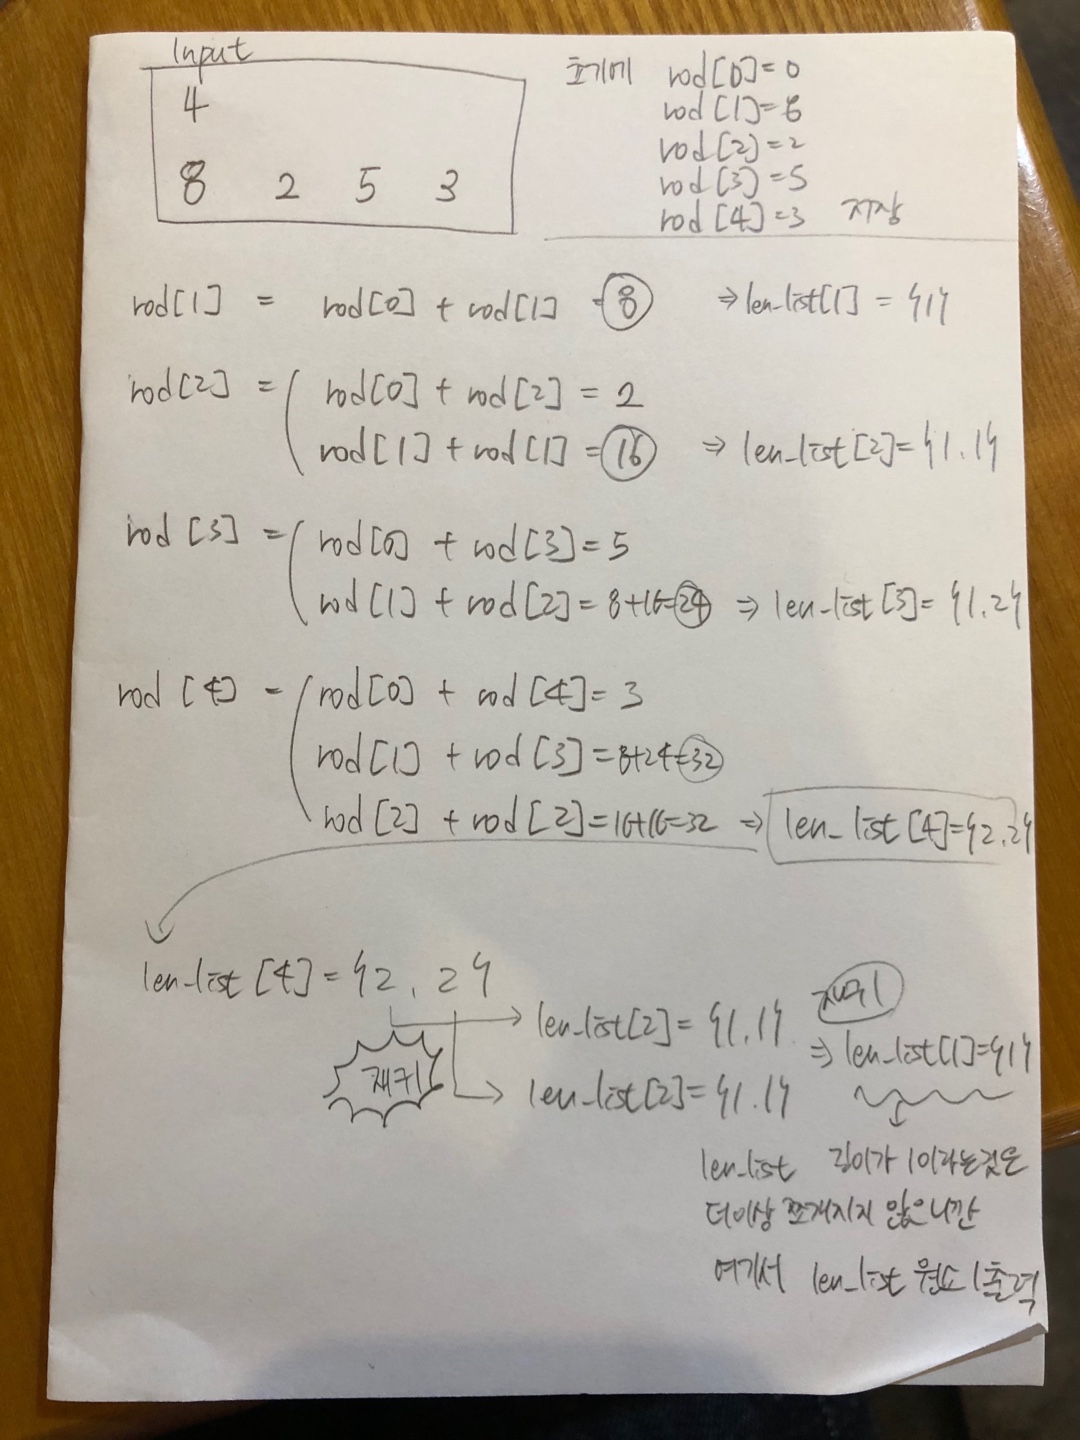 Input
4
8 2 5 3
초기에 rod[0]=0
rod[1]=8
rod[2]=2
rod[3]=5
rod[4]=3 저장
rod[1] = rod[0] + rod[1] = 8 ⇒ len-list[1] = {1}
rod[2] = ( rod[0] + rod[2] = 2
rod[1] + rod[1] = 16 ⇒ len_list[2]= {1.1}
rod [3] = ( rod[0] + rod[3]=5
rod[1] + rod[2]= 8+16=24 ⇒ len-list[3]= {1.2}
rod [4] = ( rod[0] + rod[4]=3
rod[1] + rod[3]=8+24=32
rod[2] + rod[2]=16+16=32 ⇒ len_list[4]={2.2}
len-list [4] = {2, 2}
재귀
len_list[2]= {1.1}
len_list[2]= {1.1}
재귀
⇒ len_list[1]={1}
len_list 길이가 1이라는것은
더이상 쪼개지지 않으니깐
여기서 len_list 원소 1출력